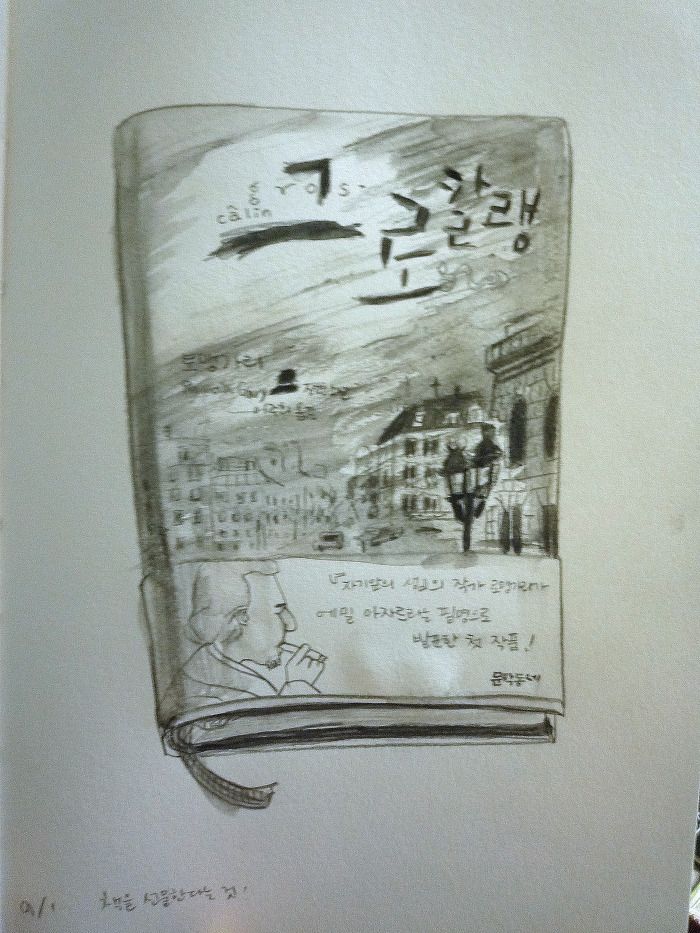 gros
câlin
그로칼랭
로맹 가리
장편소설
자기앞의 생의 작가 로맹가리가
에밀 아자르라는 필명으로
발표한 첫 작품!
문학동네
9/1 책을 선물한다는 것!